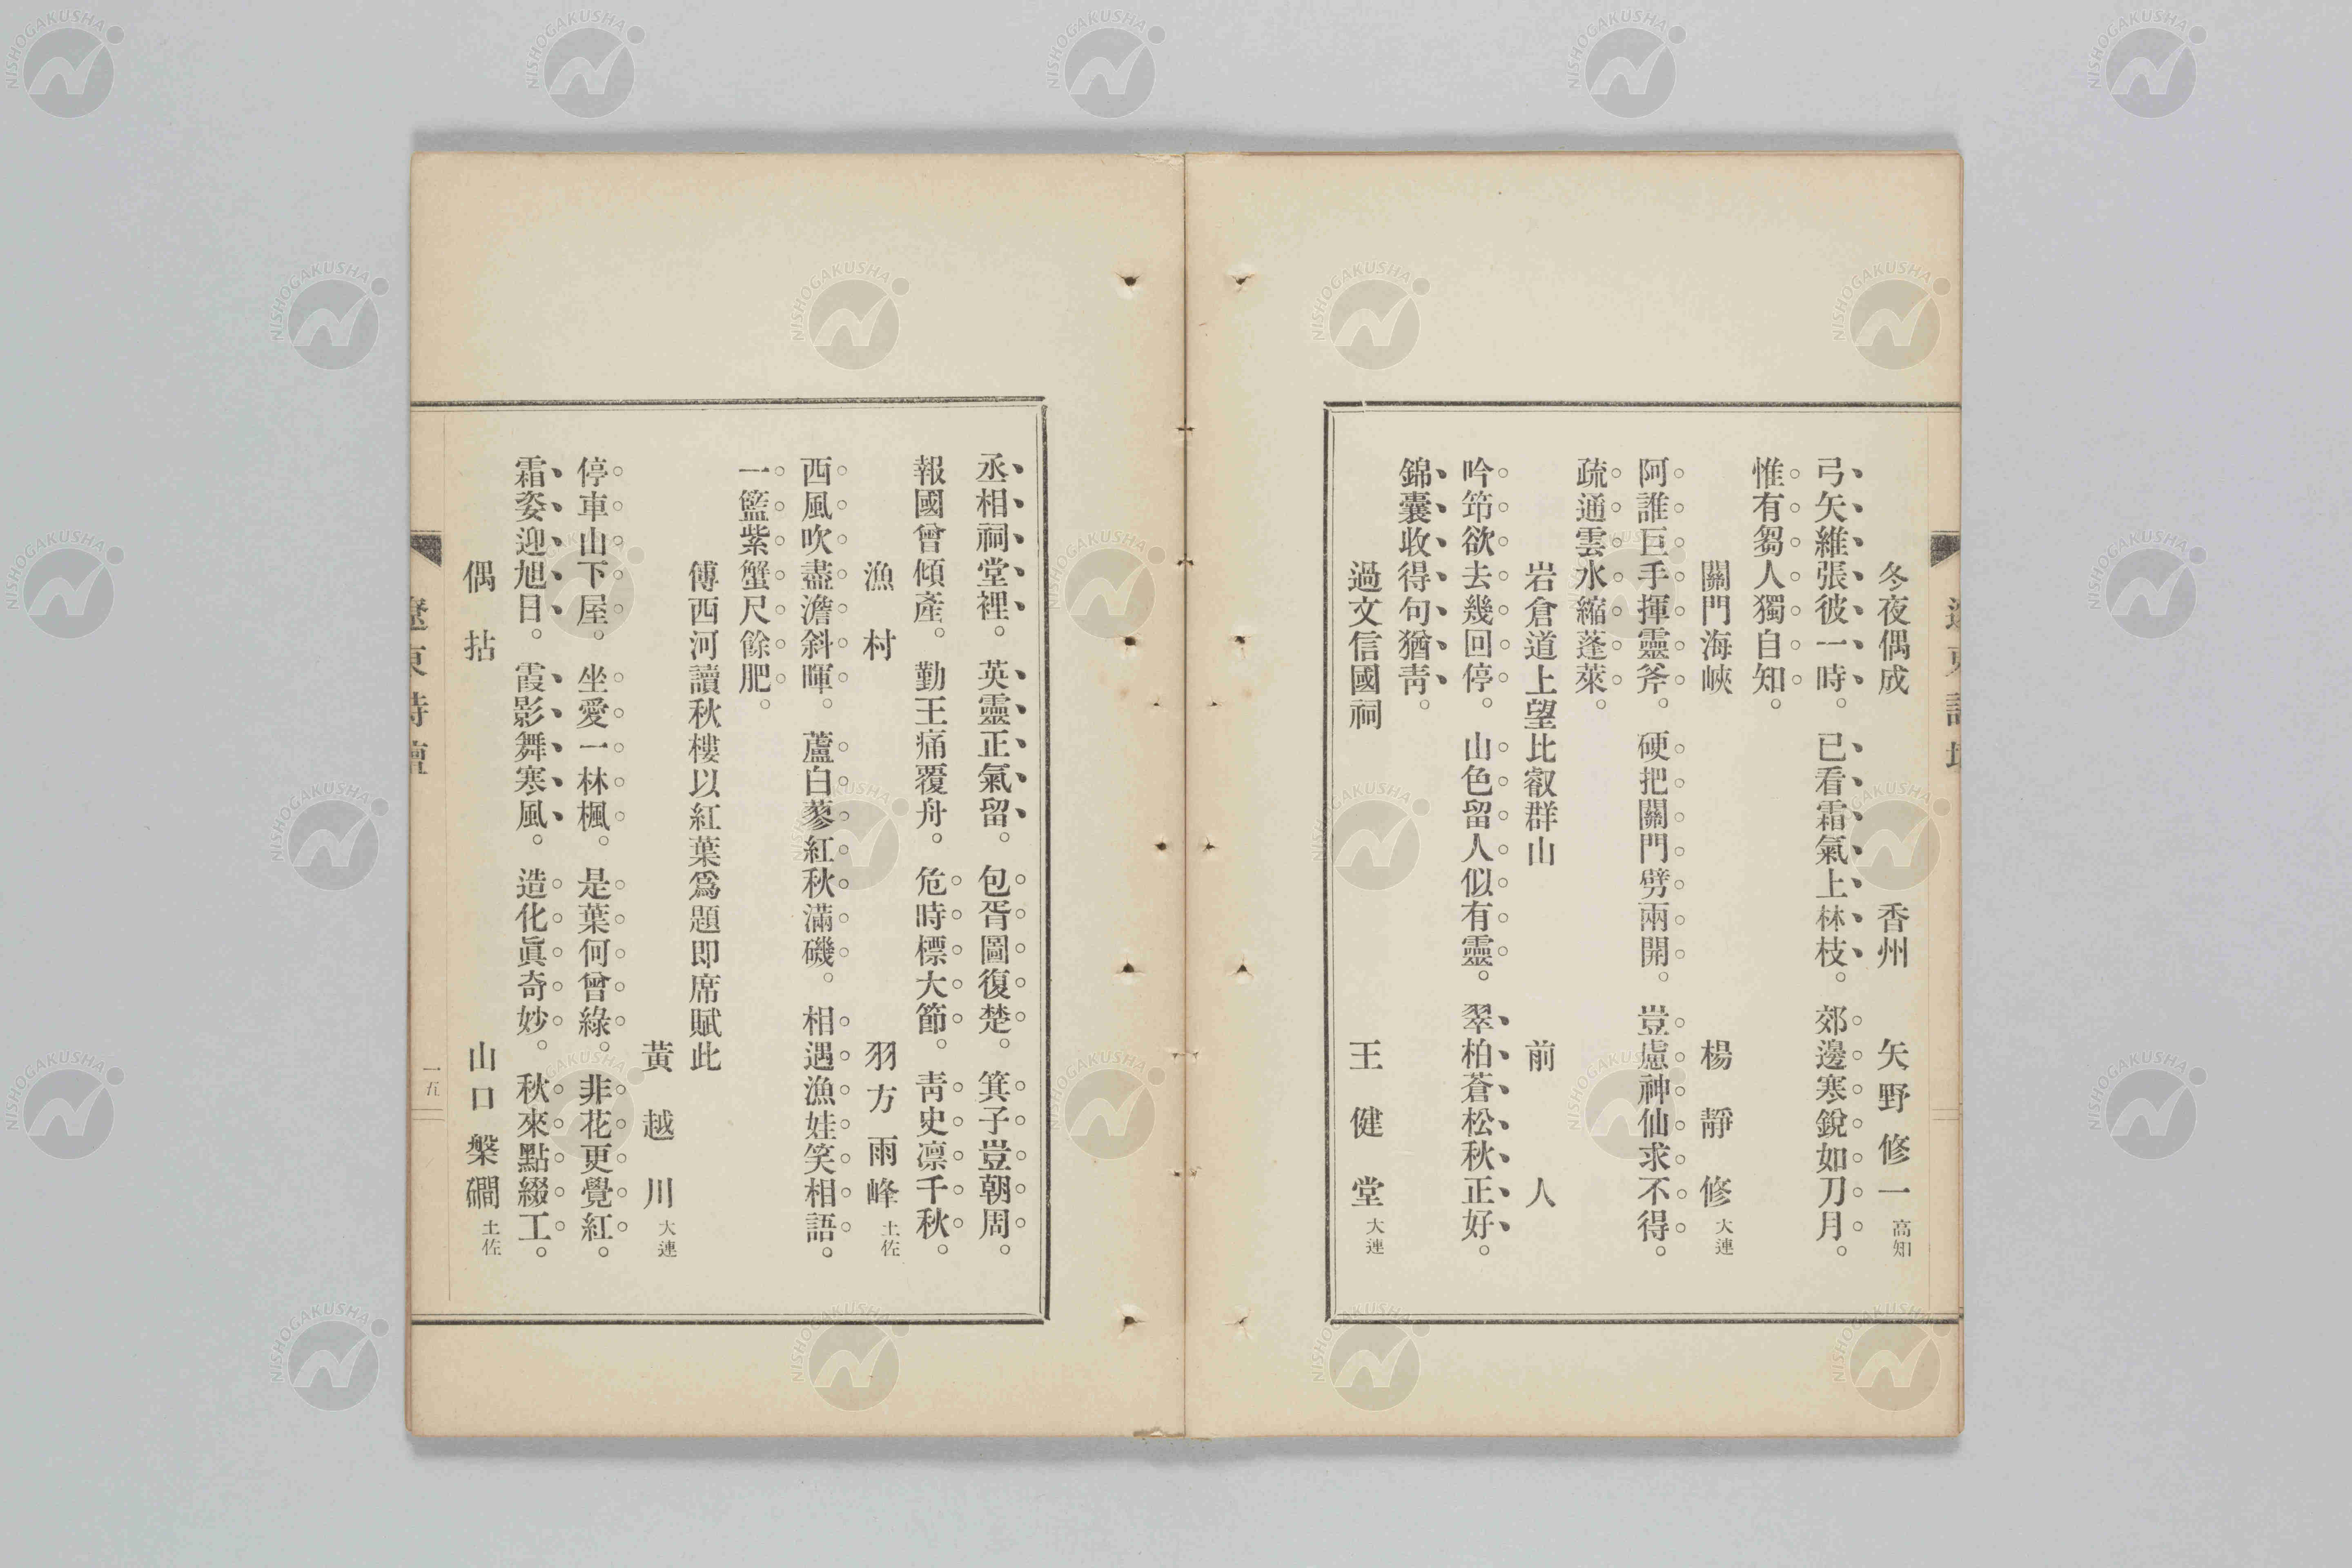 冬夜偶成 香州 矢野修一 高知
弓矢維張彼一時。已看霜氣上林枝。郊邊寒銳如刀月。
惟有芻人獨自知。
關門海峽 楊靜修 大連
阿誰巨手揮靈斧。硬把關門劈兩開。豈慮神仙求不得。
疏通雲水縮蓬萊。
岩倉道上望比叡群山 前人
吟笻欲去幾回停。山色留人似有靈。翠柏蒼松秋正好。
錦囊收得句猶靑。
過文信國祠 王健堂 大連
丞相祠堂裡。英靈正氣留。包胥圖復楚。箕子豈朝周。
報國曾傾產。勤王痛覆舟。危時標大節。靑史凛千秋。
漁村 羽方雨峰 土佐
西風吹盡澹斜暉。蘆白蓼紅秋滿磯。相遇漁娃笑相語。
一籃紫蟹尺餘肥。
傅西河讀秋樓以紅葉爲題即席賦此
黃越川 大連
停車山下屋。坐愛一林楓。是葉何曾綠。非花更覺紅。
霜姿迎旭日。霞影舞寒風。造化眞奇妙。秋來點綴工。
偶拈 山口槃磵 土佐
遼東詩壇
一五
NISHOGAKUSHA